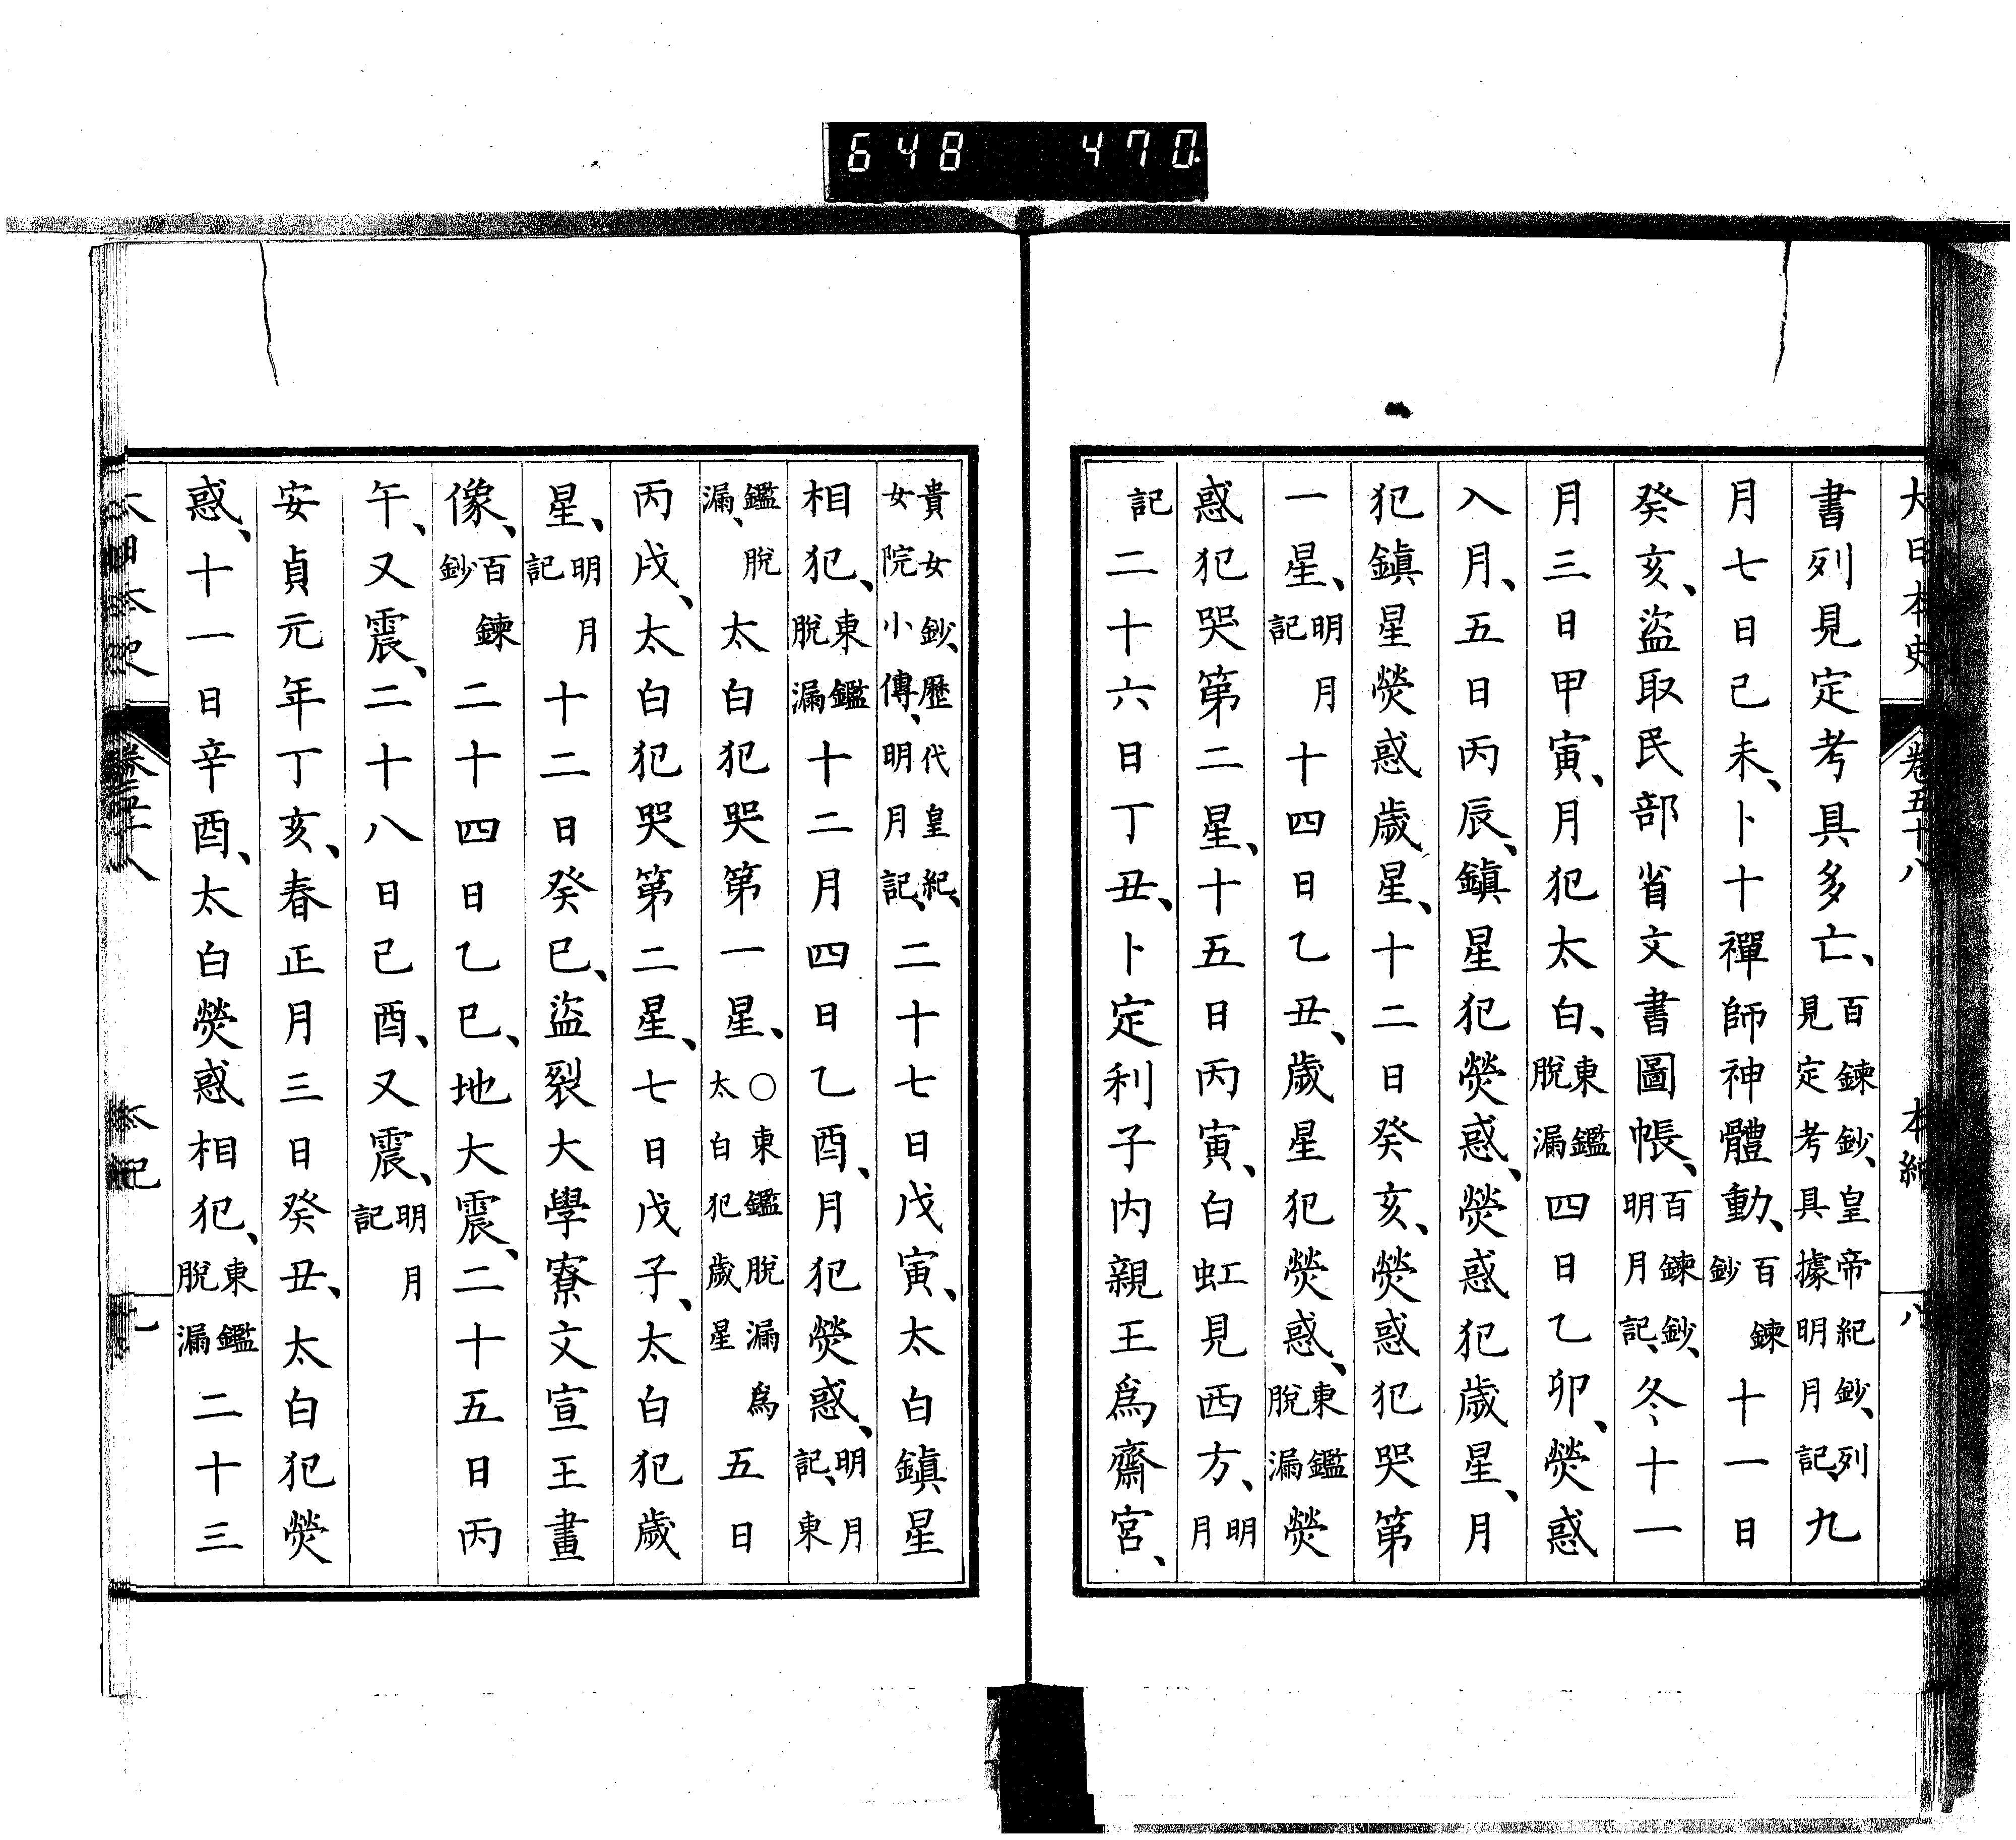 648 470
大日本史 卷五十八 本紀 八
書列見定考具多亡、百鍊鈔、皇帝紀鈔、列見定考具據明月記、九
月七日己未、卜十禪師神體動、百鍊鈔十一日
癸亥、盜取民部省文書圖帳、百鍊鈔、明月記、冬十一
月三日甲寅、月犯太白、東鑑脫漏四日乙卯、熒惑
入月、五日丙辰、鎭星犯熒惑、熒惑犯歲星、月
犯鎭星熒惑歲星、十二日癸亥、熒惑犯哭第
一星、明月記十四日乙丑、歲星犯熒惑、東鑑脫漏熒
惑犯哭第二星、十五日丙寅、白虹見西方、明月
記二十六日丁丑、卜定利子內親王爲齋宮、
貴女女鈔、歷代皇紀、女院小傳、明月記、二十七日戊寅、太白鎭星
相犯、東鑑脫漏十二月四日乙酉、月犯熒惑、明月記、東
鑑脫漏、太白犯哭第一星、○東鑑脫漏爲太白犯歲星五日
丙戌、太白犯哭第二星、七日戊子、太白犯歲
星、明月記十二日癸巳、盜裂大學寮文宣王畫
像、百鍊鈔二十四日乙巳、地大震、二十五日丙
午、又震、二十八日己酉、又震、明月記
安貞元年丁亥、春正月三日癸丑、太白犯熒
惑、十一日辛酉、太白熒惑相犯、東鑑脫漏二十三
大日本史 卷五十八 本紀